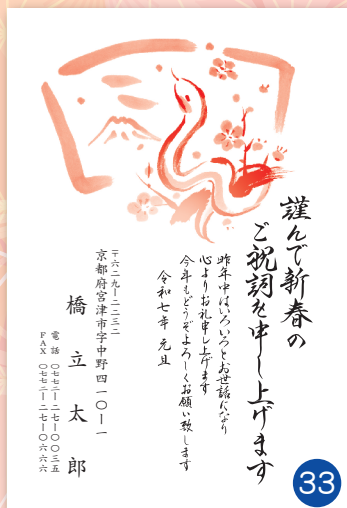 謹んで新春の
ご祝詞を申し上げます
昨年中はいろいろとお世話になり
心よりお礼申し上げます
今年もどうぞよろしくお願い致します
令和七年 元旦
〒六二九-二二三二
京都府宮津市字中野四一〇-一
橋立太郎
電話 〇七七二-二七-〇〇三五
FAX 〇七七二-二七-〇六六六
33